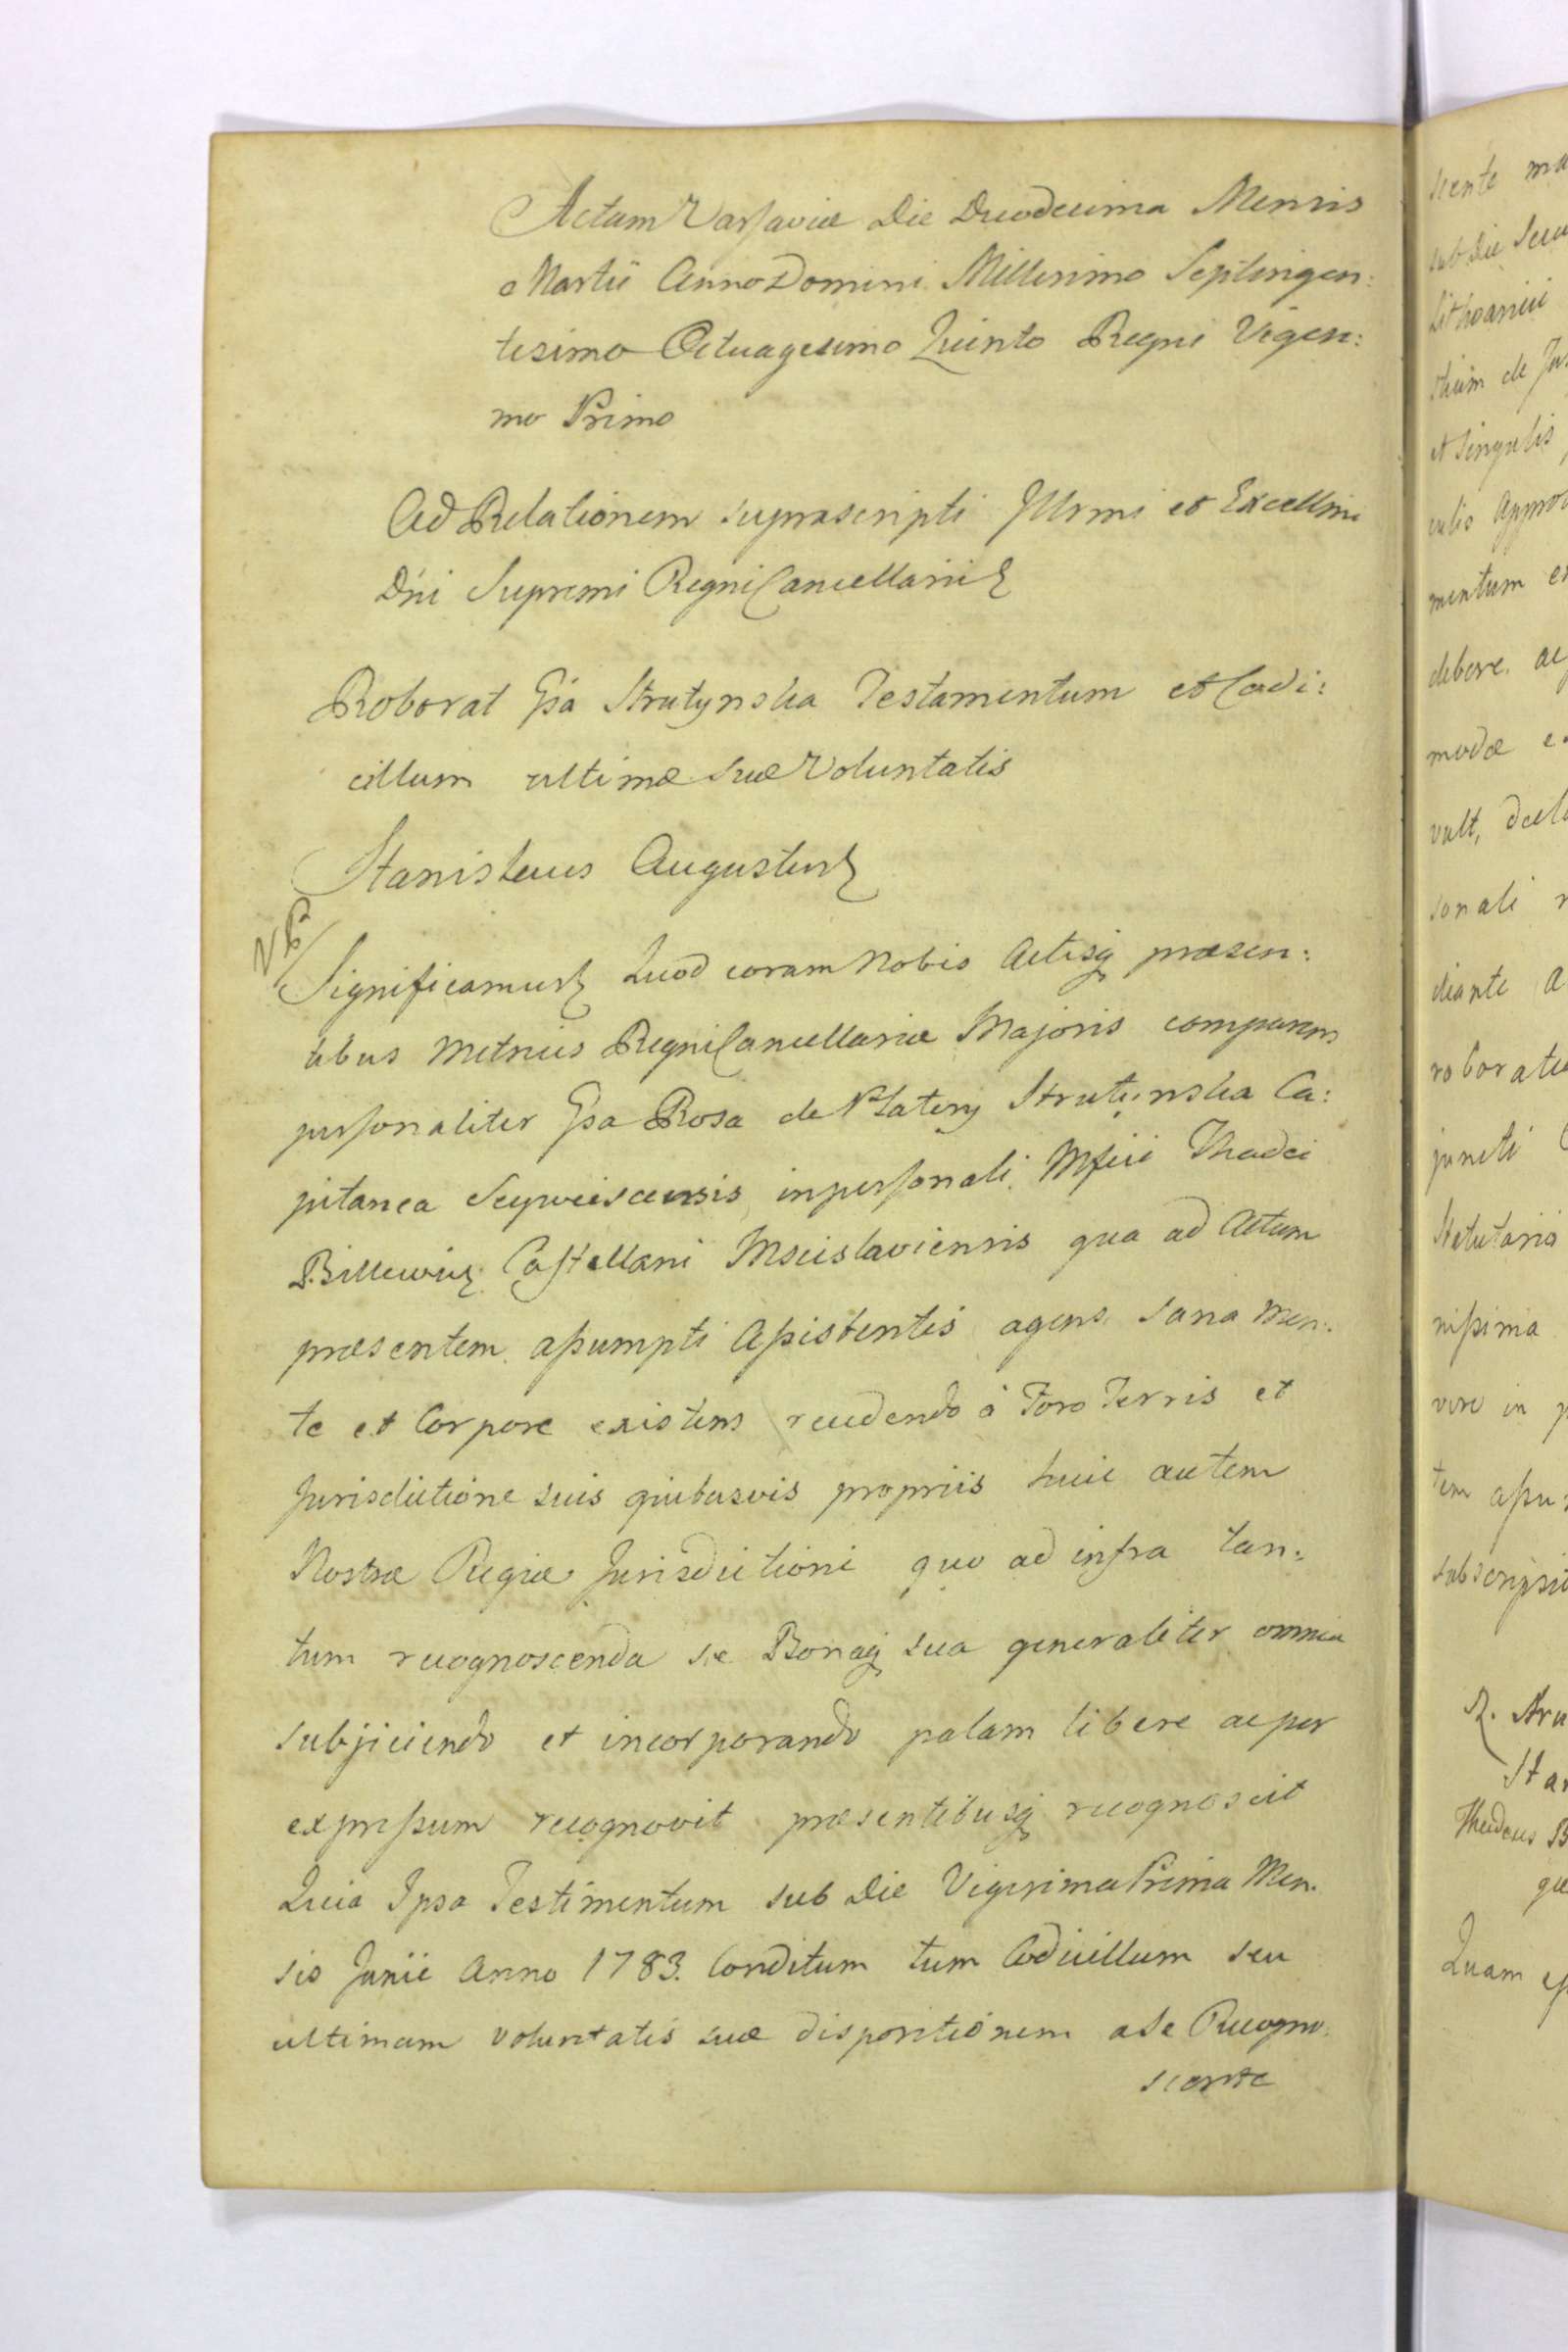 Actum Varsaviæ Die Duodecima Mensis
Martii Anno Domini Millesimo Septingen:
tesimo Octuagesimo Quinto Regni Vigesi:
mo Primo
Ad Relationem suprascripti Illrmi et Excellmi
Dńi Supremi Regni Cancellarii
Roborat Gsa Strutynska Testamentum et Codi:
cillum ultimæ suæ Voluntatis
Stanislaus Augustus
NB
Significamus Quod coram Nobis Actisq præsen:
tibus Metrices Regni Cancellariæ Majoris comparens
personaliter Gsa Rosa de Platery Strutynska Ca:
pitanea Scyweiscensis in personali Mfici Thadei
Billewicz Castellani Mscislaviensis qua ad Actum
præsentem assumpti Assistentis agens sana men:
te et Corpore existens recedendo à Foro Terris et
Jurisdictione suis quibusvis propriis huic autem
Nostræ Regiæ Jurisdictioni quo ad infra tan:
tum recognoscenda se Bonaq sua generaliter omnia
subjiciendo et incorporando palam libere ac per
expressum recognovit præsentibusq recognoscit
Quia Ipsa Testimentum sub Die Vigesima Prima Men:
sis Junii Anno 1783. Conditum tum Codicillum seu
ultimam voluntatis suæ dispositionem a se Recogno:
scente
scente
sub Die
Lithvanici
de
et singulis
mentum
debore. ac
modæ
vult,
sonali
diante a
roborati
juncti
Statutaria
nissima
vero in
tem assu
subscripsit
R. Stru
Sta
Thadeus B
Quam